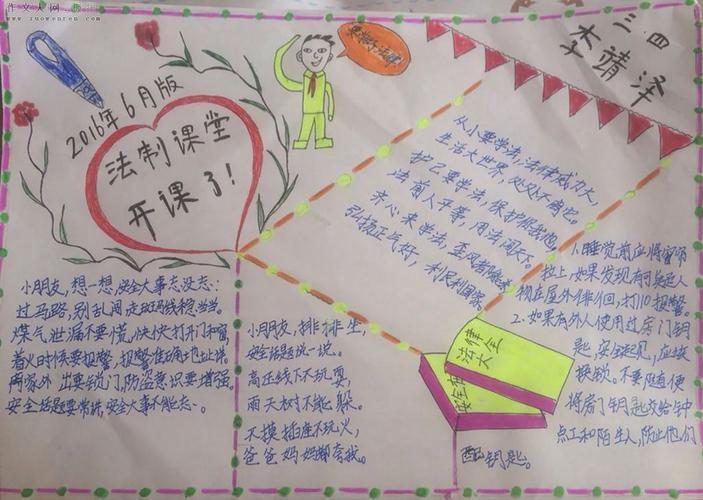 作文人网
www.zuowenren.com
三.四
李靖泽
2016年6月版
法制课堂
开课了!
从小要学法,法律威力大,
生活大世界,处处不离它。
护己要学法,保护
法前人平等,用法闹天下。
齐心来学法,歪风
弘扬正气好,利民利国家。
小朋友,想一想,安全大事忘没忘:
过马路,别乱闯,走斑马线稳当当。
煤气泄漏不要慌,快快打开门和窗
着火时候要报警,报警准确地址详。
离家外出要锁门,防盗意识要增强。
安全话题要常讲,安全大事不能忘。
小朋友,排排坐,
安全话题说一说。
高压线下不玩耍,
雨天树下不能躲。
不摸插座不玩火,
爸爸妈妈都夸我。
法律大全
小睡觉前应将窗帘
拉上,如果发现有可疑人
物在屋外徘徊,打110报警。
2.如果有外人使用过房门钥
匙,安全起见,应该
换锁。不要随便
将房门钥匙交给钟
点工和陌生人,防止他们
配钥匙。